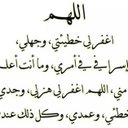 اللهم
اغفر لي خطيئتي، وجهلي،
وإسرافي في أمري، وما أنت أعلم
مني، اللهم اغفر لي هزلي، وجدي
خطئي، وعمدي، وكل ذلك عندي